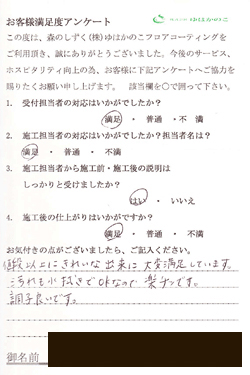 お客様満足度アンケート
ゆはかのこ
この度は、森のしずく(株)ゆはかのこフロアコーティングを
ご利用頂き、誠にありがとうございました。今後のサービス、
ホスピタリティ向上の為、お客様に下記アンケートへご協力を
賜りたくお願い申し上げます。 該当欄を○で囲って下さい。
1. 受付担当者の対応はいかがでしたか?
満足 ・ 普通 ・ 不満
2. 施工担当者の対応はいかがでしたか?担当者名は?
満足 ・ 普通 ・ 不満
3. 施工担当者から施工前・施工後の説明は
しっかりと受けましたか?
はい ・ いいえ
4. 施工後の仕上がりはいかがですか?
満足 ・ 普通 ・ 不満
お気付きの点がございましたら、ご記入ください。
以上にきれいな出来に大変満足しています。
汚れも水拭きでOKなので楽チンです。
調子良いです。
御名前